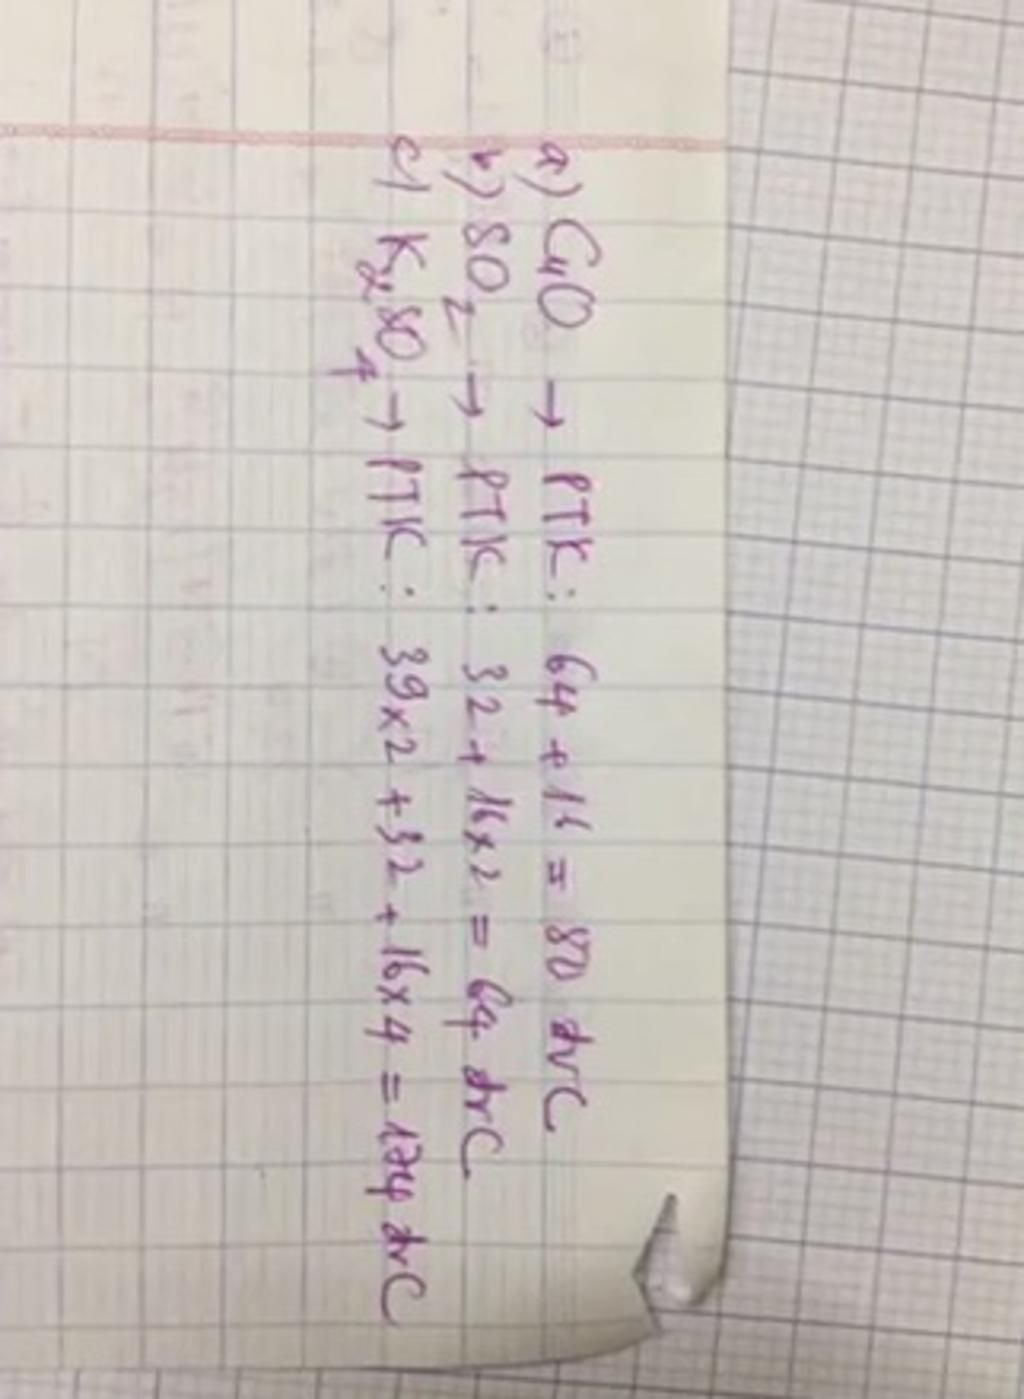 a) CuO → PTK: 64 + 16 = 80 đvC
b) SO2 → PTK: 32 + 16x2 = 64 đvC
c) K2SO4 → PTK: 39x2 + 32 + 16x4 = 174 đvC